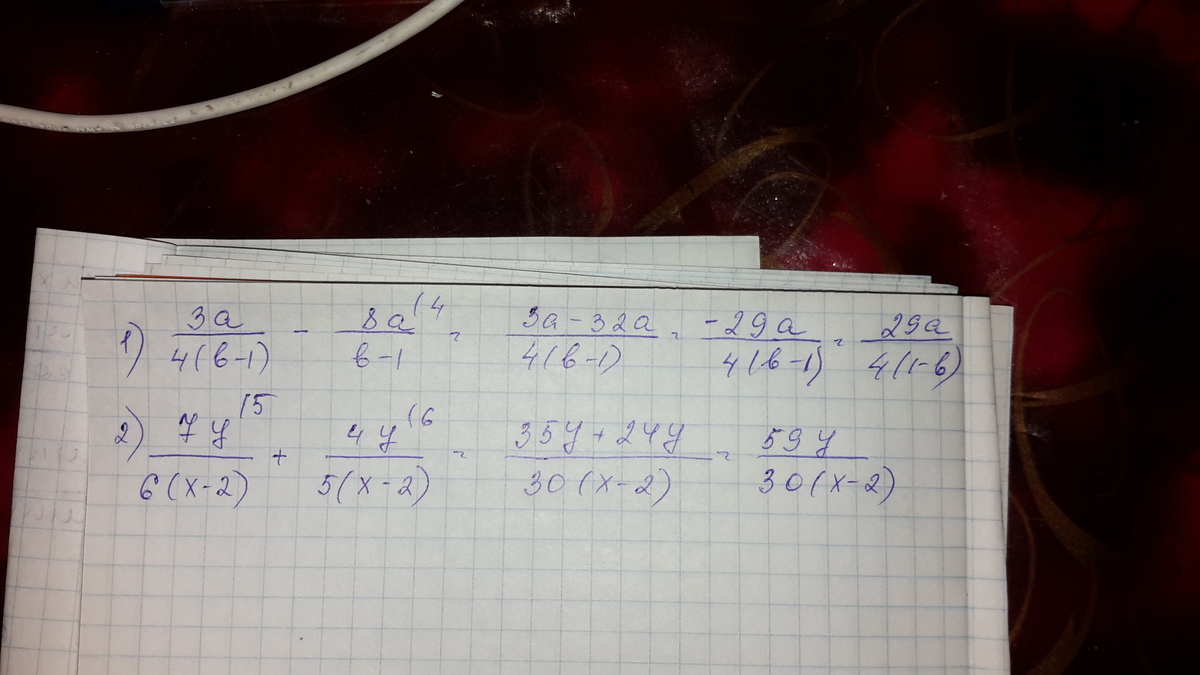 1) 3a/4(в-1) - 8a(4/в-1 = 3a-32a/4(в-1) = -29a/4(в-1) = 29a/4(1-в)
2) 7y(5/6(x-2) + 4y(6/5(x-2) = 35y+24y/30(x-2) = 59y/30(x-2)